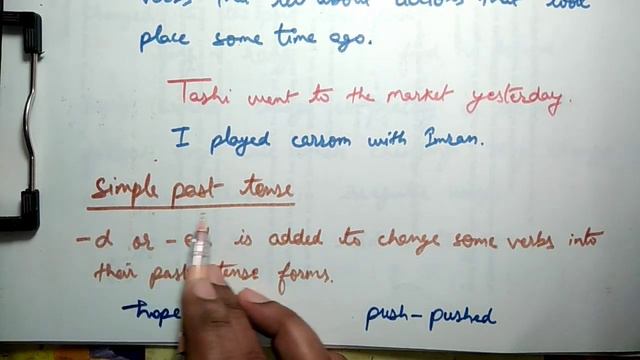 verbs that tell about actions that took
place some time ago.
Tashi went to the market yesterday.
I played carrom with Imran.
Simple past tense
-d or - is added to change some verbs into
their past tense forms.
hope push - pushed